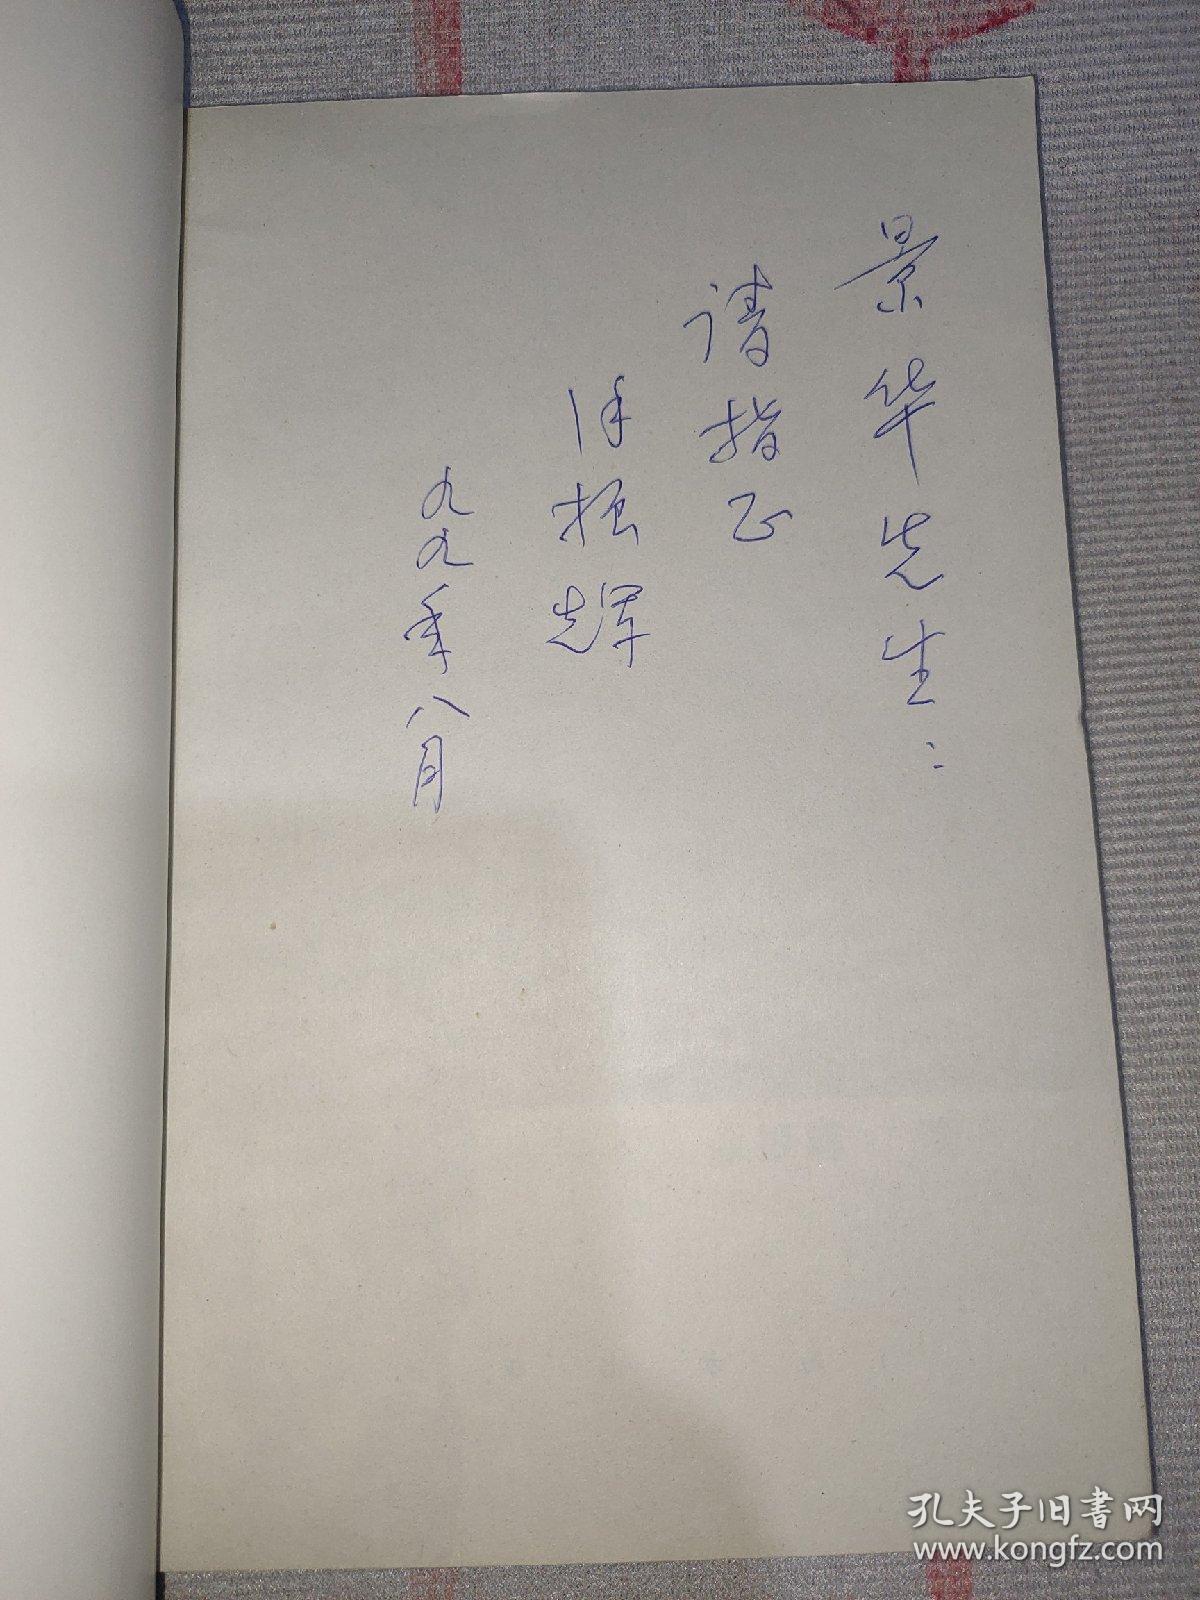 景华先生：
请指正
徐振辉
九九年八月
孔夫子旧书网
www.kongfz.com